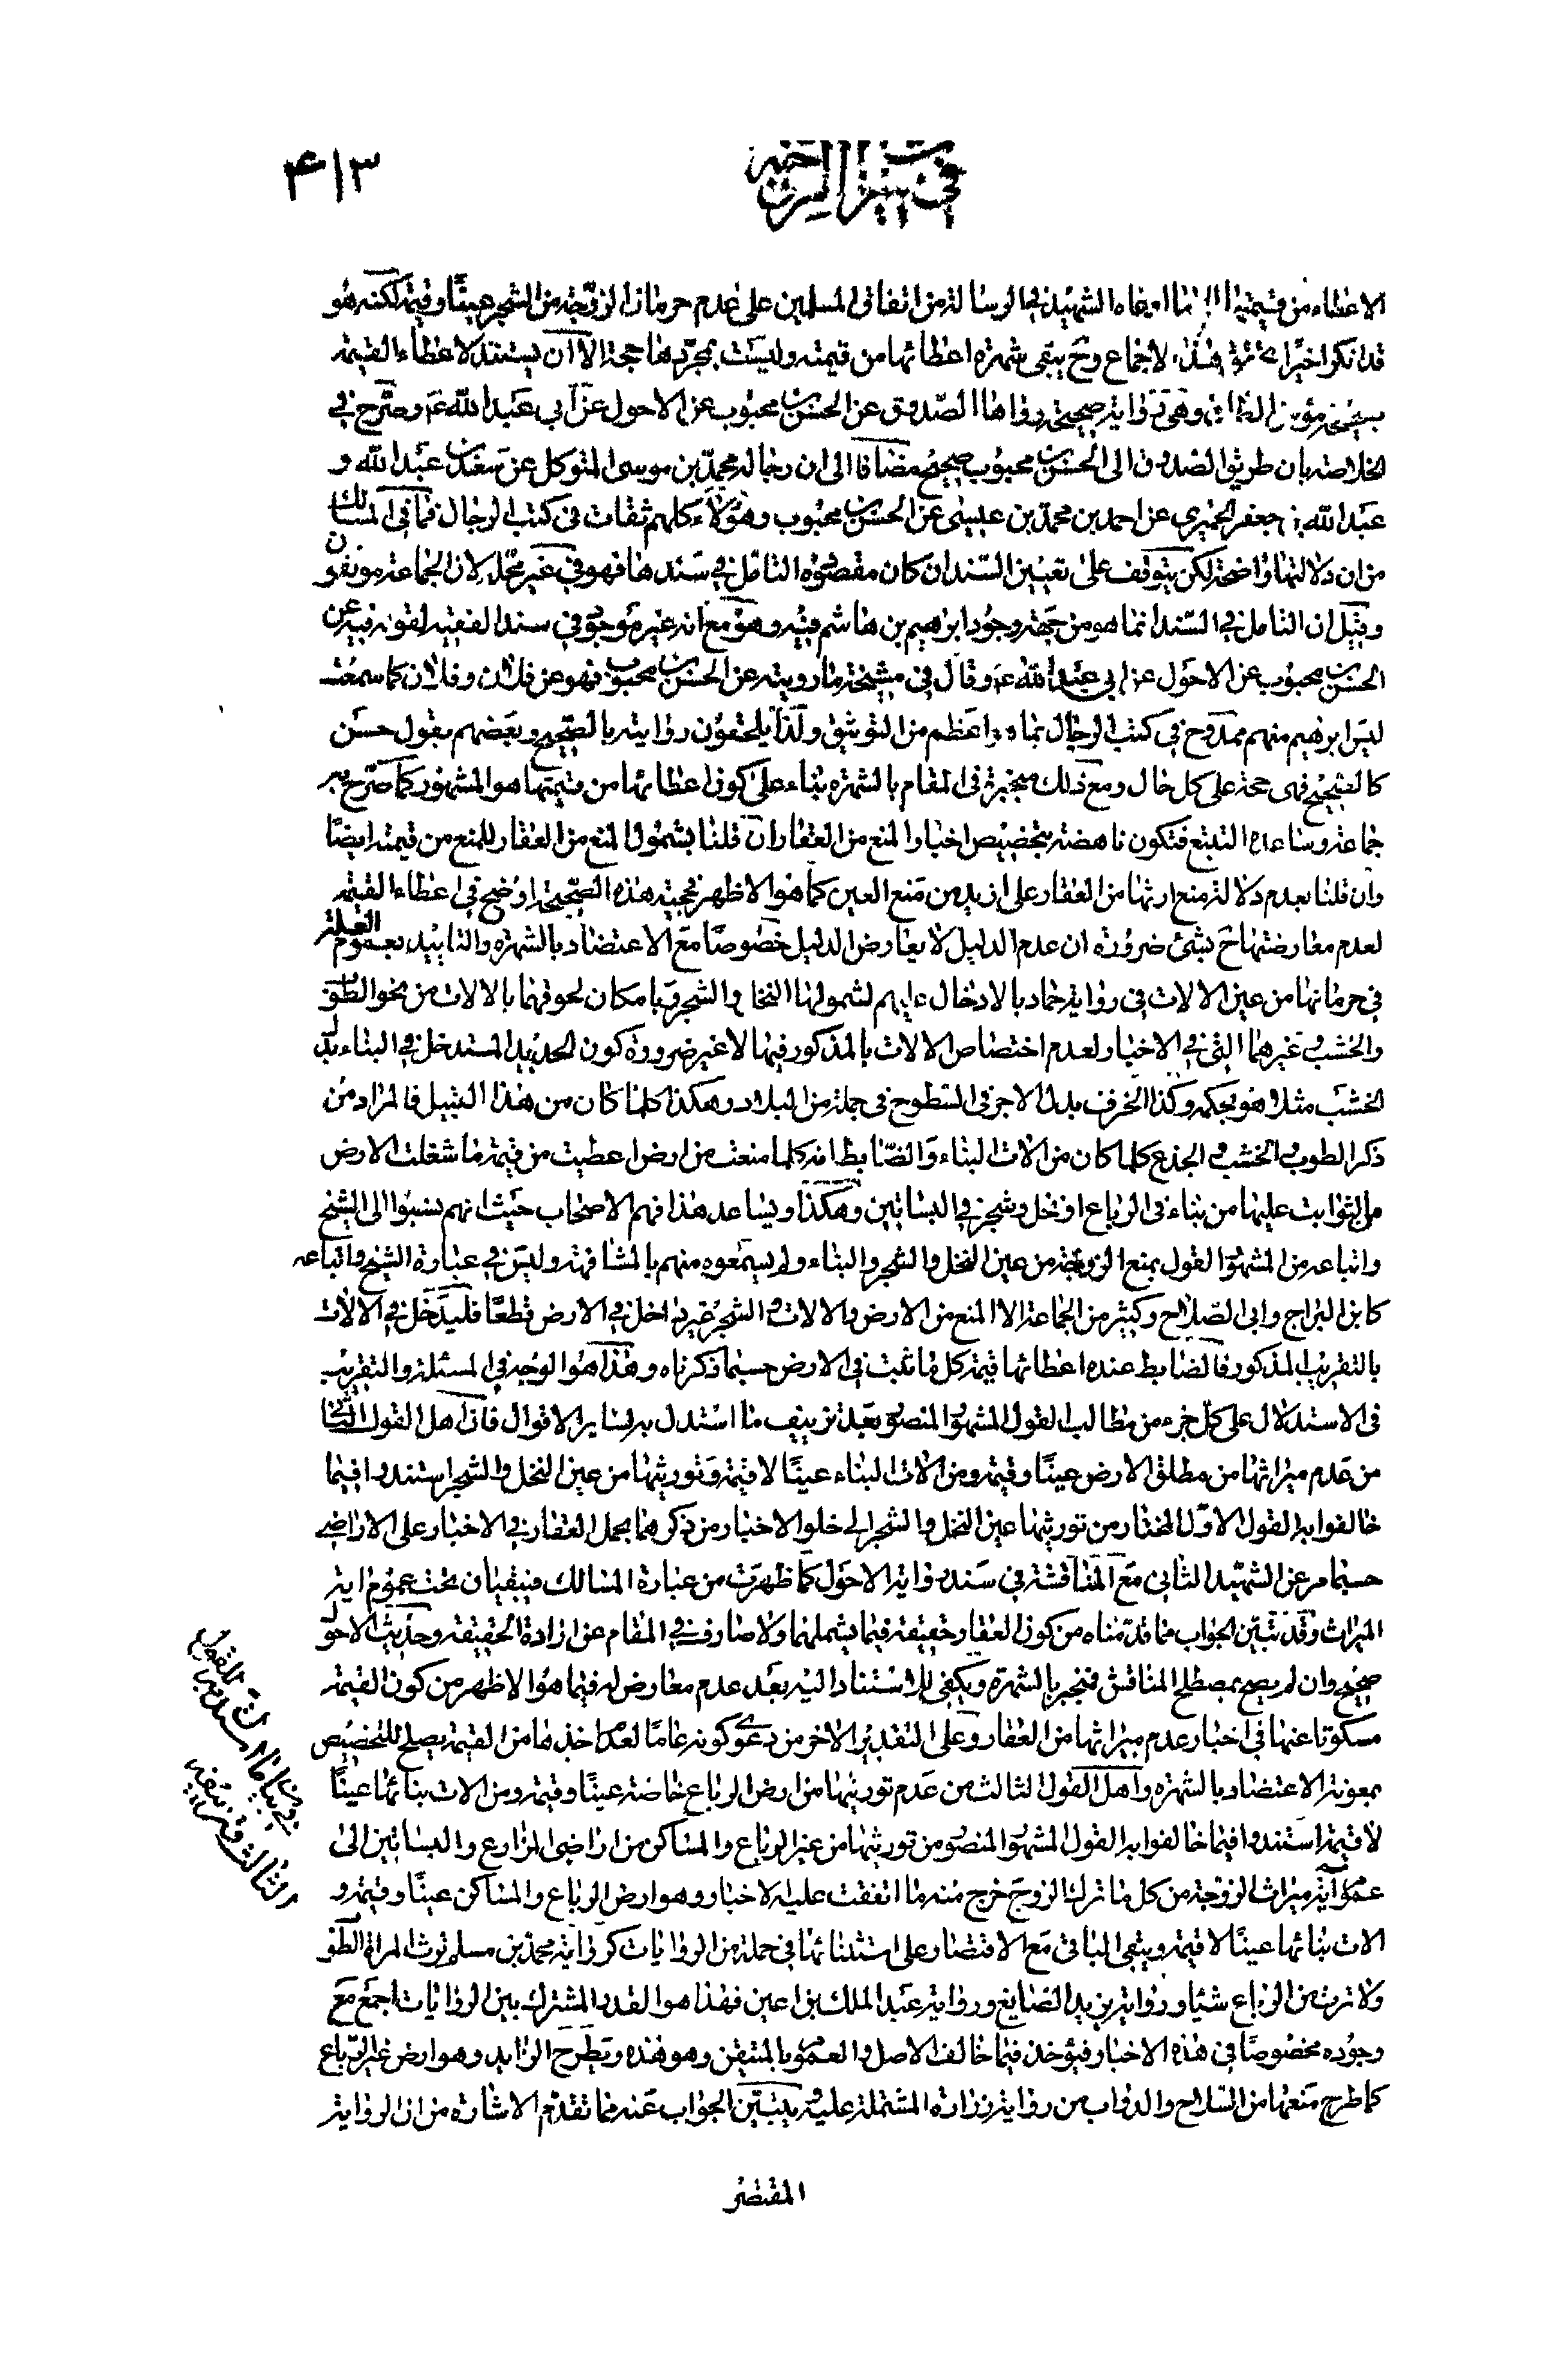 في ميراث الزوجة
۴۱۳
الاعطاء من قيمتها ما ادعاه الشهيد في الرسالة من اتفاق المسلمين على عدم حرمان الزوجة من الشجر عينًا وقيمة لكنه هو
قد انكر اخيرًا هذا الاجماع وح يبقى شهرة اعطائها من قيمته وليست بمجردها حجة الا ان يستند لاعطاء القيمة
مؤمن الطاق وهى رواية صحيحة رواها الصدوق عن الحسن بن محبوب عن الاحول عن ابي عبد الله ع وصرح في
الخلاصة بان طريق الصدوق الى الحسن بن محبوب صحيح مضافا الى ان رجاله محمد بن موسى المتوكل عن سعد بن عبد الله و
عبد الله بن جعفر الحميري عن احمد بن محمد بن عيسى عن الحسن بن محبوب وهؤلاء كلهم ثقات في كتب الرجال فما في المسالك
من ان دلالتها واضحة لكن يتوقف على تعيين السند ان كان مقصوده التامل في سندها فهو في غير محله لان الجماعة موثقون
وقيل ان التامل في السند انما هو من جهة وجود ابرهيم بن هاشم فيه وهو مع انه غير موجود في سند الفقيه لقوله فيه عن
الحسن بن محبوب عن الاحول عن ابي عبد الله ع وقال في مشيخته ما رويته عن الحسن بن محبوب فهو عن فلان وفلان كما سمعت
ليس ابرهيم منهم ممدوح في كتب الرجال بما هو اعظم من التوثيق ولذا يلحقون روايته بالصحيح وبعضهم يقول حسن
كالصحيح فهى حجة على كل حال ومع ذلك منجبرة في المقام بالشهرة بناء على كون اعطائها من قيمتها هو المشهور كما صرح به
جماعة وساعده التتبع فتكون ناهضة بتخصيص اخبار المنع من العقار ان قلنا بشمول المنع من العقار للمنع من قيمته ايضًا
وان قلنا بعدم دلالة منع ارثها من العقار على ازيد من منع العين كما هو الاظهر فحجية هذه الصحيحة اوضح في اعطاء القيمة
لعدم معارضتها ح بشئ ضرورة ان عدم الدليل لا يعارض الدليل خصوصًا مع الاعتضاد بالشهرة والتاييد بعموم العلة
في حرمانها من عين الالات في رواية حماد بالادخال عليهم لشمولها النخل والشجر وبامكان لحوقهما بالالات من نحو الطوب
والخشب وغيرهما التي في الاخبار لعدم اختصاص الالات بالمذكور فيها لا غير ضرورة كون الحديد المستدخل في البناء بدل
الخشب مثلا هو بحكمه وكذا الخزف بدل الاجر في السطوح في جملة من البلاد وهكذا كلما كان من هذا القبيل فالمراد من
ذكر الطوب والخشب والجذع كلما كان من الات البناء والضابط انه كلما منعت من ارض اعطيت من قيمة ما شغلت الارض
من الثوابت عليها من بناء في الرباع او نخل وشجر في البساتين وهكذا ويساعد هذا فهم الاصحاب حيث انهم نسبوا الى الشيخ
واتباعه من المشهور القول بمنع الزوجة من عين النخل والشجر والبناء ولم يسمعوه منهم بالمشافهة وليس في عبارة الشيخ واتباعه
كابن البراج وابي الصلاح وكثير من الجماعة الا المنع من الارض والالات والشجر غير داخل في الارض قطعًا فليدخل في الالات
بالتقريب المذكور فالضابط عنده اعطائها قيمة كل ما ثبت في الارض حسبما ذكرناه وهذا هو الوجه في المسئلة والتقريب
في الاستدلال على كل جزء من مطالب القول المشهور المنصور بعد تزييف ما استدل به لساير الاقوال فان اهل القول الثاني
من عدم ميراثها من مطلق الارض عينًا وقيمة ومن الات البناء عينًا لا قيمة وتوريثها من عين النخل والشجر استندوا فيما
خالفوا به القول الاول المختار من توريثها عين النخل والشجر الى خلو الاخبار من ذكرهما بحمل العقار في الاخبار على الاراضي
حسبما مر عن الشهيد الثاني مع المناقشة في سند رواية الاحول كما ظهرت من عبارة المسالك فيبقيان تحت عموم اية
الميراث وقد تبين الجواب مما قدمناه من كون العقار حقيقة فيما يشملهما ولا صارف في المقام عن ارادة الحقيقة وحديث الاحول
صحيح وان لم يصح بمصطلح المناقش فنجبر بالشهرة ويكفى للاستناد اليه بعد عدم معارض له فيما هو الاظهر من كون القيمة
مسكوتا عنها في اخبار عدم ميراثها من العقار وعلى التقدير الاخر من دعوى كونه عامًا لعدم اخذها من القيمة يصلح للتخصيص
بمعونة الاعتضاد بالشهرة واهل القول الثالث من عدم توريثها من ارض الرباع خاصة عينًا وقيمة ومن الات بنائها عينًا
لا قيمة استندوا فيما خالفوا به القول المشهور المنصور من توريثها من غير الرباع والمساكن من اراضي المزارع والبساتين الى
عموم آية ميراث الزوجة من كل ما ترك الزوج خرج منه ما اتفقت عليه الاخبار وهو ارض الرباع والمساكن عينًا وقيمة و
الات بنائها عينًا لا قيمة ويبقى الباقي مع الاقتصار على استثنائها في جملة من الروايات كرواية محمد بن مسلم ترث المراة الطوب
ولا ترث من الرباع شيئا ورواية يزيد الصايغ ورواية عبد الملك بن اعين فهذا هو القدر المشترك بين الروايات اجمع مع
وجوده مخصوصًا في هذه الاخبار فيؤخذ فيما خالف الاصل والعموم بالمتيقن وهو هذه ويطرح الزايد وهو ارض غير الرباع
كما طرح منعها من السلاح والدواب من رواية زرارة المشتملة عليه ويتبين الجواب عنه مما تقدم الاشارة من ان الرواية
المقتصر